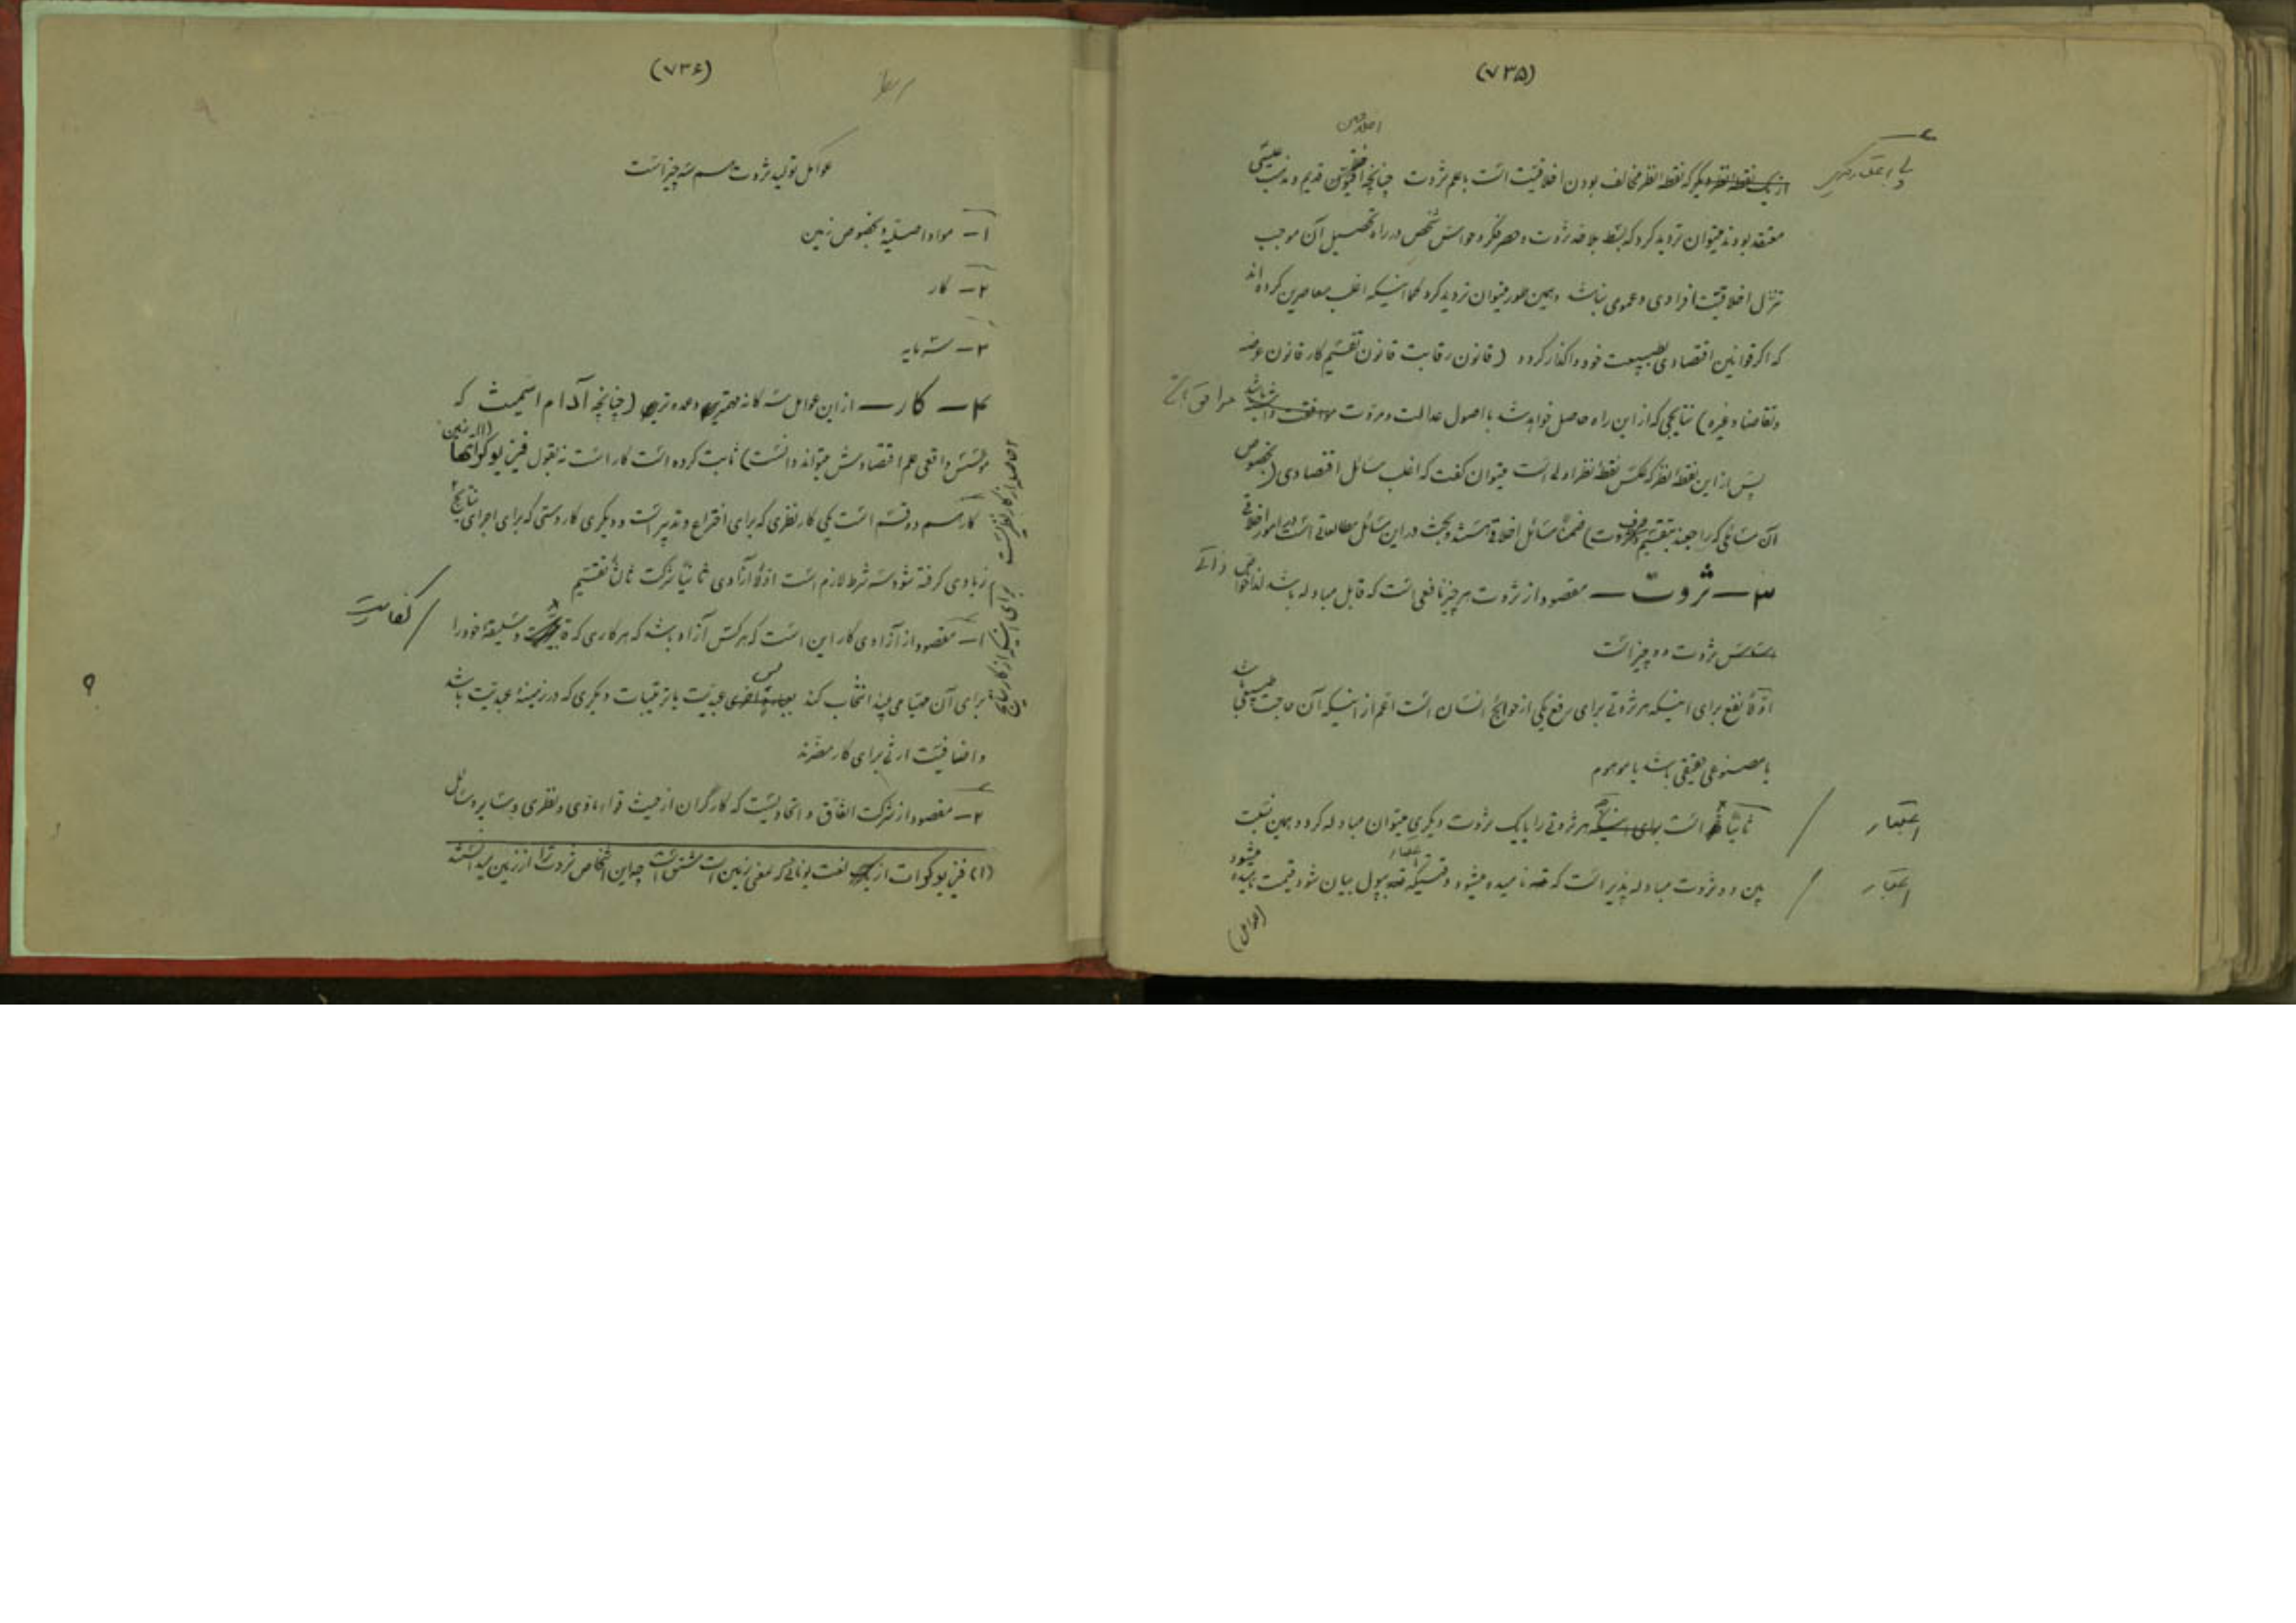 (۷۳۵)
اخلاقیین
از یک نقطه نظر دیگر که نقطه النظر مخالف بودن اخلاقیت است با علم ثروت چنانچه قدیم و مذهب عیسی
معتقد بودند میتوان تردید کرد که بسط بلا حد ثروت و حصر فکر و حواس شخص در راه تحصیل آن موجب
تنزل اخلاقیت افرادی و عمومی نباشد و همین طور میتوان تردید کرد کما اینکه اغلب معاصرین کرده اند
که اگر قوانین اقتصادی بطبیعت خود واگذار گردد (قانون رقابت قانون تقسیم کار قانون عرضه
و تقاضا و غیره) نتایجی که از این راه حاصل خواهد شد با اصول عدالت و مروت موافقت داشته باشد
پس از این نقطه نظر که عکس نقطه نظر اولی است میتوان گفت که اغلب مسائل اقتصادی (بخصوص
آن مسائلی که راجعند بتقسیم و صرف ثروت) ضمناً مسائل اخلاقی هستند و بحث در این مسائل مطالعاتی است در امور اخلاقی
۳ — ثروت — مقصود از ثروت هر چیز نافعی است که قابل مبادله باشد لذا خواص ذاتی
اساس ثروت دو چیز است
اولاً نفع برای اینکه هر ثروتی برای رفع یکی از حوایج انسان است اعم از اینکه آن حاجت طبیعی باشد
یا مصنوعی حقیقی باشد یا موهوم
ثانیاً است برای اینکه هر ثروتی را با یک ثروت دیگری میتوان مبادله کرد و همین نسبت
اعتبار
بین دو ثروت مبادله پذیر است که نامیده میشود و وقتیکه بپول بیان شود قیمت نامیده میشود
اعتبار
(عوامل)
(۷۳۶)
عوامل تولید ثروت سه چیز است
۱ — مواد اصلیه بخصوص زمین
۲ — کار
۳ — سرمایه
۴ — کار — از این عوامل سه گانه مهمترین و عمده ترین (چنانچه آدام اسمیث که
مؤسس واقعی علم اقتصادش میتواند دانست) ثابت کرده است کار است نه بقول فیزیوکراتها (۱) زمین
کار دو قسم است یکی کار نظری که برای اختراع و تدبیر است و دیگری کار دستی که برای اجرای نتایج
حاصله از کار نظری است برای اینکه از کار نتایج
زیادی گرفته شود سه شرط لازم است اولاً آزادی ثانیاً شرکت ثالثاً تقسیم
۱ — مقصود از آزادی کار این است که هر کس آزاد باشد که هر کاری که و سلیقه خود را
کفایت
برای آن مهیا می بیند انتخاب کند عبدیت یا ترتیبات دیگری که در زمینه عبدیت باشد
و اضافیت ارثی برای کار مضرند
۲ — مقصود از شرکت اتفاق و اتحادیست که کارگران از حیث قواء مادی و نظری و حسب وسائل
(۱) فیزیوکرات از لغت یونانی که بمعنی زمین است مشتق است چه این اشخاص ثروت را از زمین میدانستند
؟